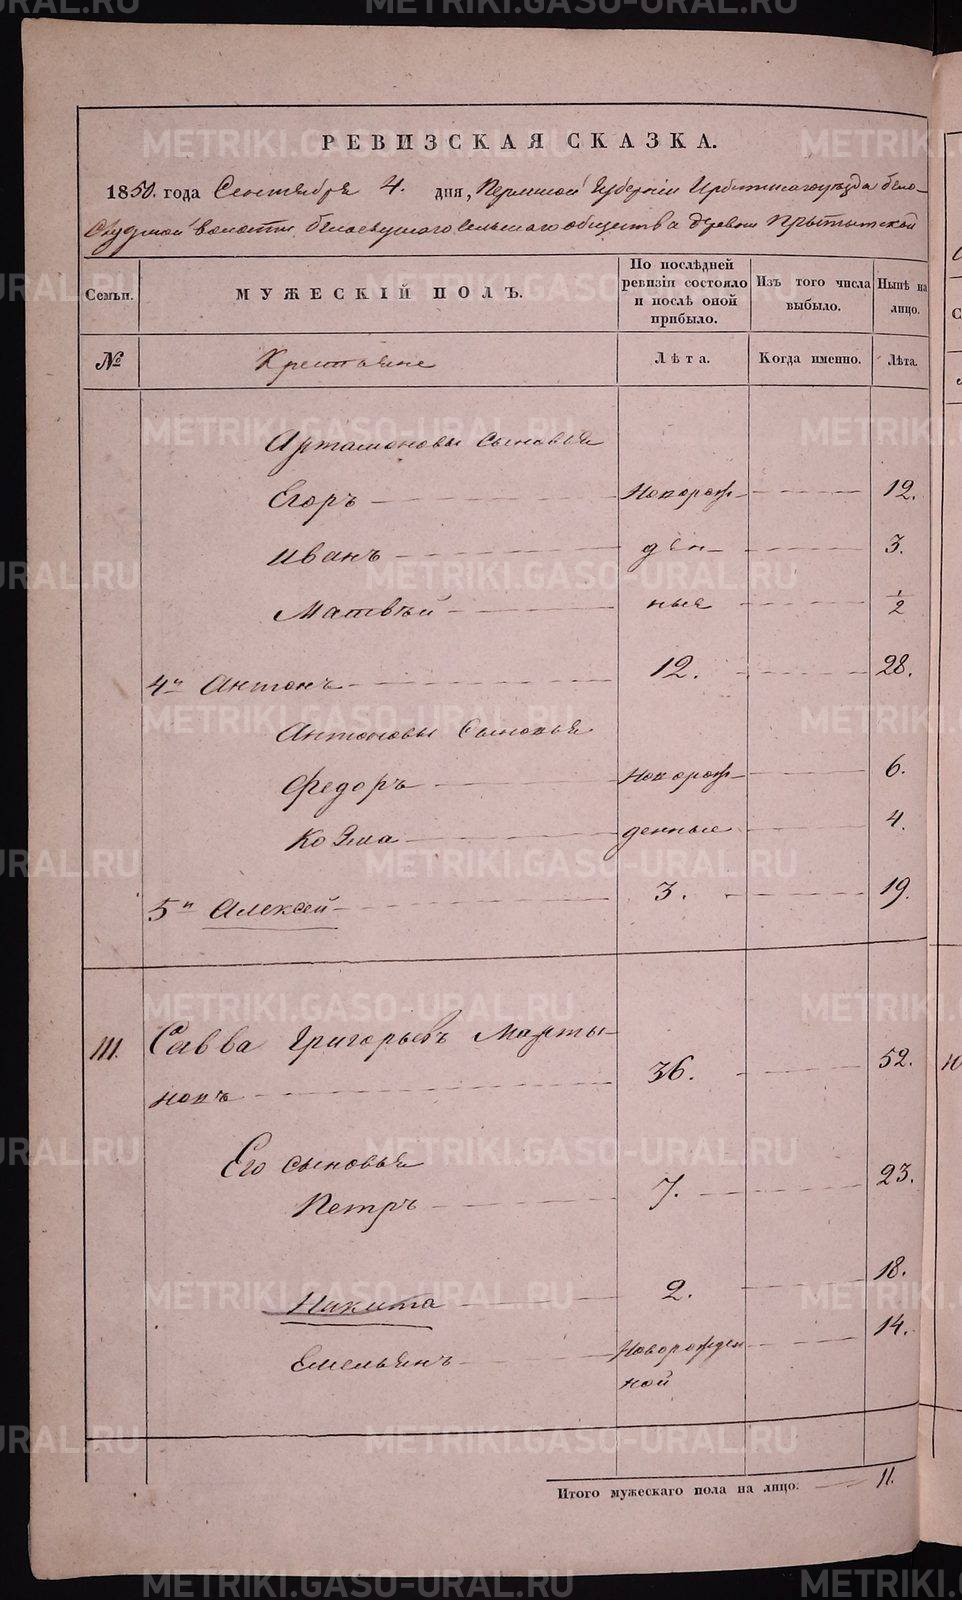 РЕВИЗСКАЯ СКАЗКА.
1850. года Сентября 4. дня, Пермской Губерніи Ирбитскаго уѣзда бело-
слудской волости белослудскаго сельскаго общества деревни
Семьи. МУЖЕСКІЙ ПОЛЪ. По послѣдней ревизіи состояло и послѣ оной прибыло. Изъ того числа выбыло. Нынѣ на лицо.
№ Крестьяне Лѣта. Когда именно. Лѣта.
Артамоновы сыновья
Егоръ Новорож 12.
Иванъ ден 3.
Матвѣй ныя 1/2
4й Антонъ 12. 28.
Антоновы Сыновья
Федоръ Новорож 6.
Козма денные 4.
5й Алексей 3. 19.
111. Савва Григорьевъ Марты-
новъ 36. 52.
Его сыновья
Петръ 7. 23.
Никита 2. 18.
Емельянъ Новорожден 14.
ной
Итого мужескаго пола на лицо. 11.
METRIKI.GASO-URAL.RU